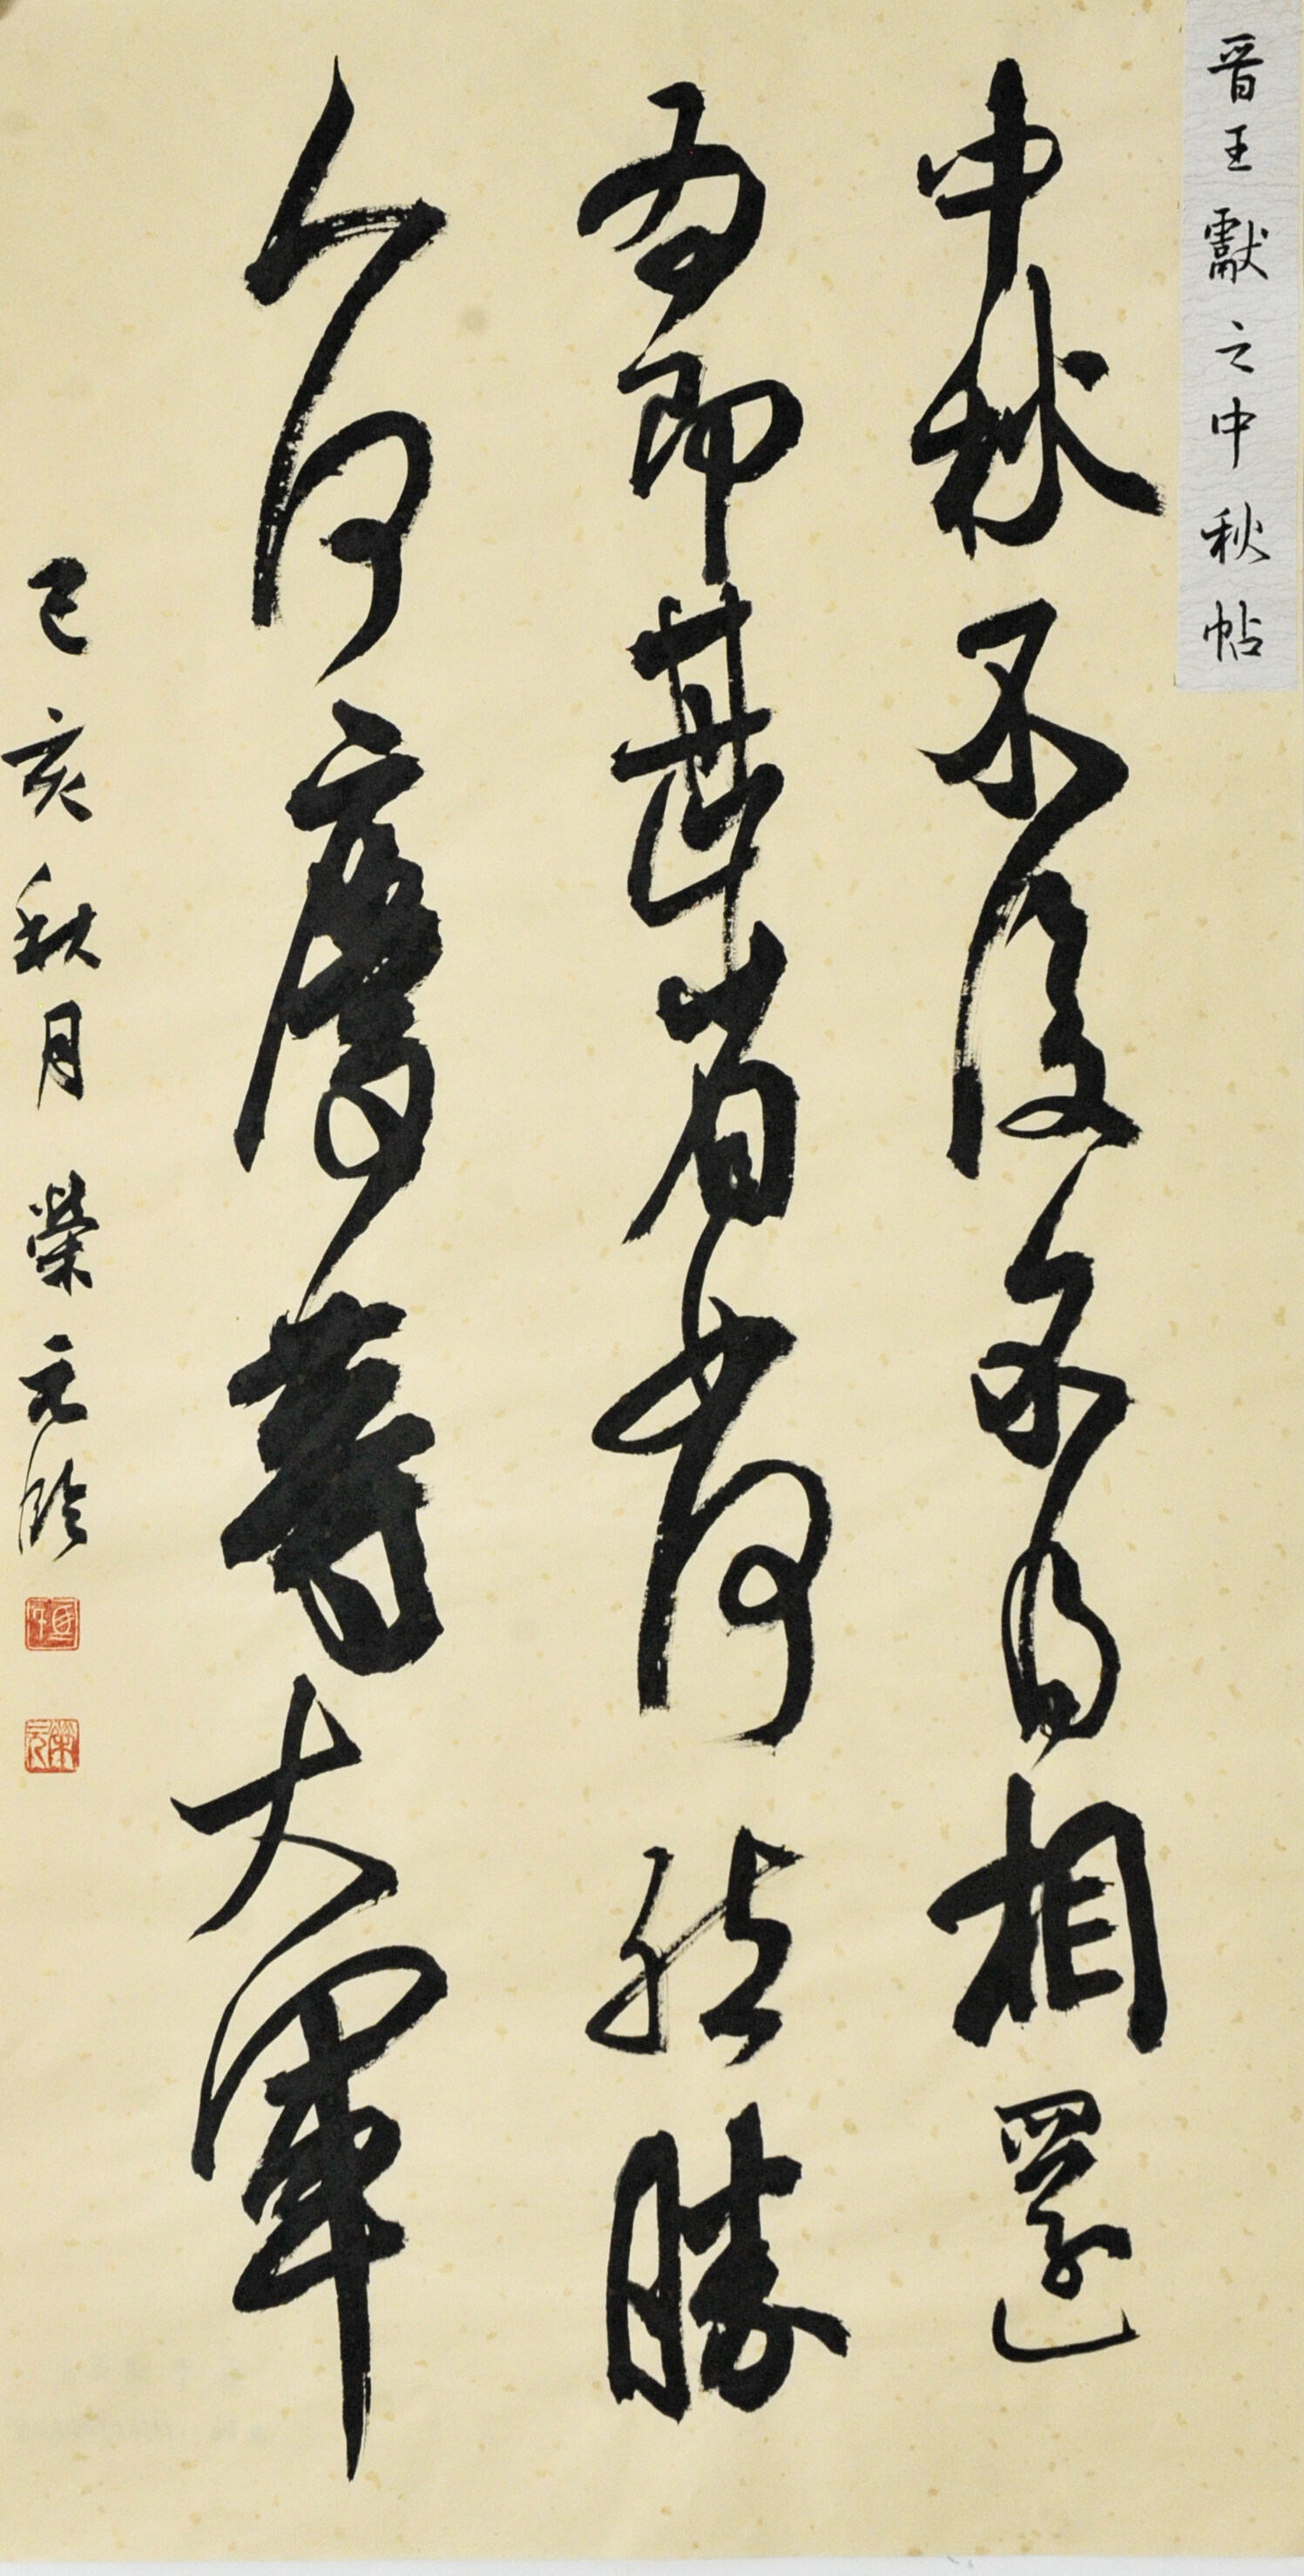 晋王獻之中秋帖
中秋不復不得相還
為即甚省如何然勝
人何慶等大軍
己亥秋月 榮元